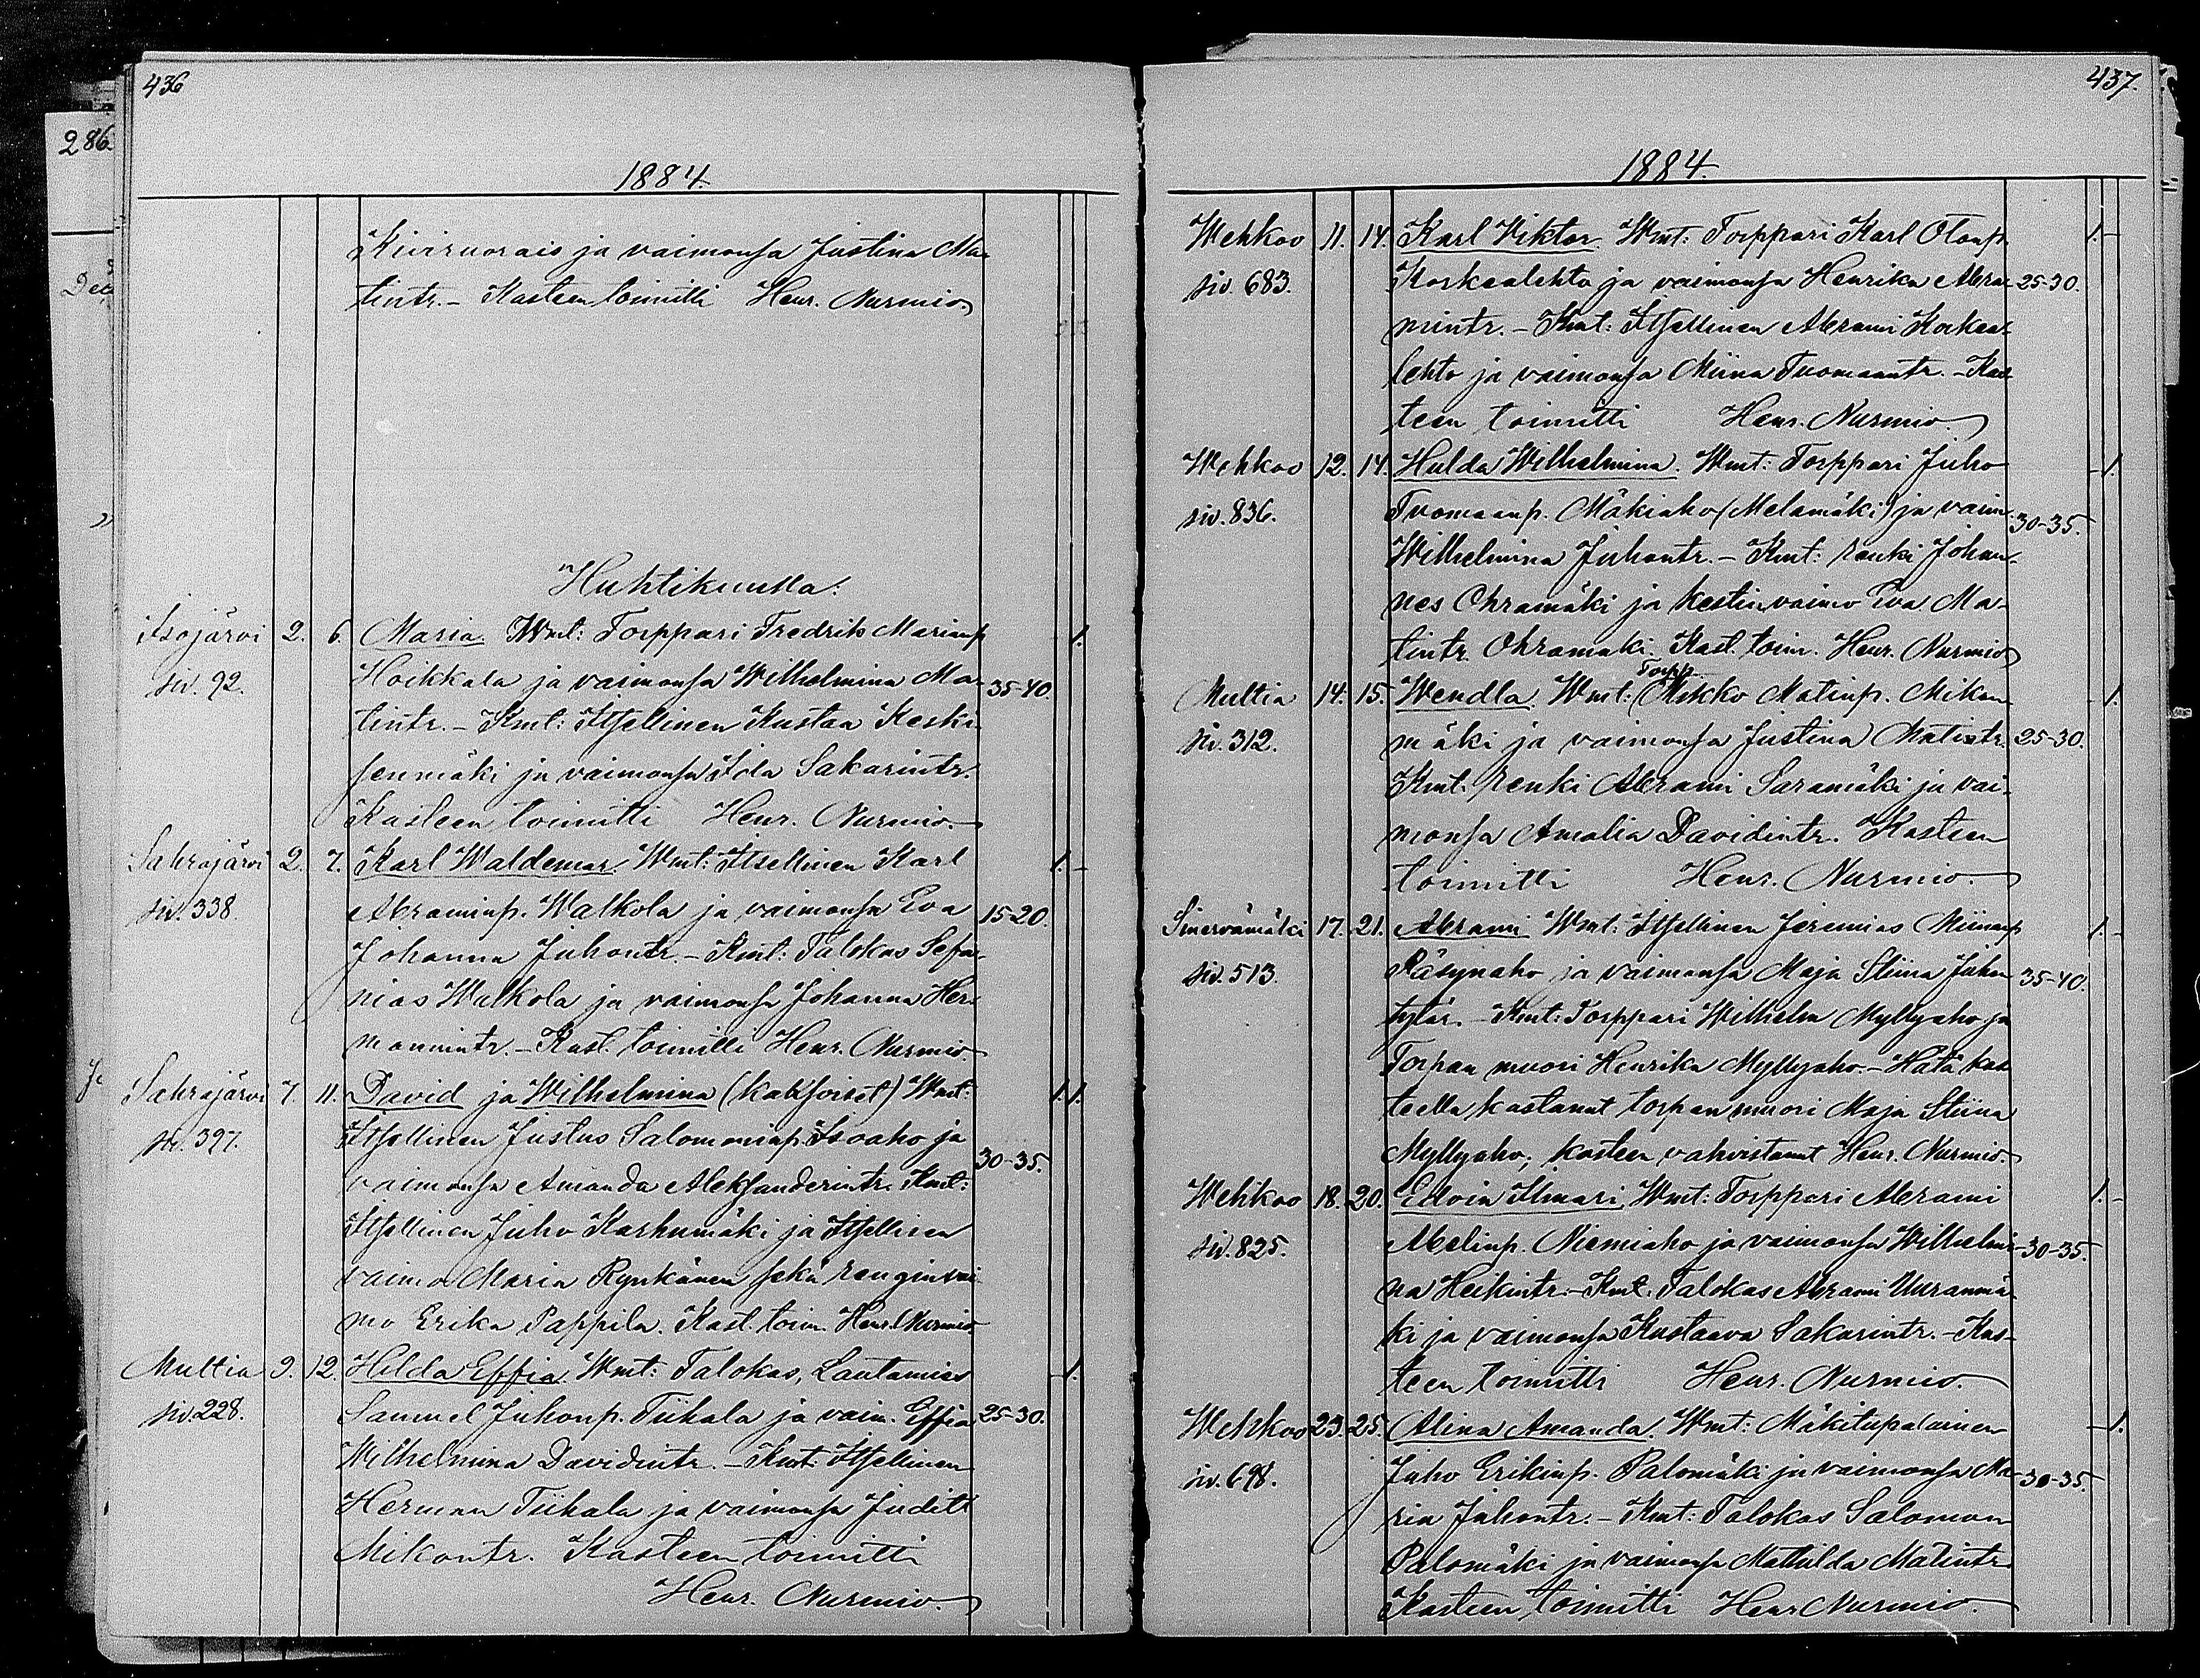 436
286.
1884.
Kivivuorais ja vaimonsa Justina Ma-
tintr. – Kasteen toimitti Henr. Nurmio
Huhtikuulla.
Isojärvi 2. 6. Maria. Wmt: Torppari Fredrik Mariinp 1.
siv. 92. Hoikkala ja vaimonsa Wilhelmina Ma- 35-40
tintr. – Kmt: Itsellinen Kustaa Keski-
senmäki ja vaimonsa Ida Sakarintr.
Kasteen toimitti Henr. Nurmio.
Sahrajärvi 2. 7. Karl Waldemar. Wmt: Itsellinen Karl 1. -
siv. 338. Abraminp. Walkola ja vaimonsa Eva 15-20.
Johanna Juhontr. – Kmt: Talokas Sefa-
nias Walkola ja vaimonsa Johanna Her-
mannintr. – Kast. toimitti Henr. Nurmio
Sahrajärvi 7. 11. David ja Wilhelmina (kaksoiset) Wmt: 1. 1.
siv. 397. Itsellinen Justus Salomoninp. Isoaho ja
vaimonsa Amanda Aleksanderintr. Kmt: 30-35.
Itsellinen Juho Karhumäki ja Itsellisen
vaimo Maria Rynkänen sekä renginvai-
mo Erika Pappila. Kast. toim. Henr. Nurmio.
Multia 9. 12. Hilda Effia. Wmt: Talokas, Lautamies - 1.
siv. 228. Samuel Juhonp. Tiihala ja vaim. Effia 25-30.
Wilhelmina Davidintr. – Kmt: Itsellinen
Herman Tiihala ja vaimonsa Judith
Mikontr. Kasteen toimitti
Henr. Nurmio.
437.
1884.
Wehkoo 11. 14. Karl Wiktor. Wmt: Torppari Karl Otonp. 1. -
siv. 683. Korkealehto ja vaimonsa Henrika Abra- 25-30.
mintr. – Kmt: Itsellinen Abrami Korkea-
lehto ja vaimonsa Miina Tuomaantr. – Kas-
teen toimitti Henr. Nurmio.
Wehkoo 12. 14. Hulda Wilhelmina. Wmt: Torppari Juho - 1.
siv. 836. Tuomaanp. Mäkiaho (Melamäki) ja vaim. 30-35.
Wilhelmina Juhontr. – Kmt: renki Johan-
nes Ohramäki ja kestinvaimo Eva Ma-
tintr. Ohramäki. Kast. toim. Henr. Nurmio
Torpp.
Multia 14. 15. Wendla. Wmt: Mikko Matinp. Mikon- - 1.
siv. 312. mäki ja vaimonsa Justina Matintr. 25-30.
Kmt: renki Abrami Saramäki ja vai-
monsa Amalia Davidintr. Kasteen
toimitti Henr. Nurmio.
Sinervämäki 17. 21. Abrami. Wmt: Itsellinen Jeremias Miinanp 1. -
siv. 513. Räsynaho ja vaimonsa Maja Stiina Juhon 35-40.
tytär. – Kmt: Torppari Wilhelm Myllyaho ja
Torpan muori Henrika Myllyaho. – Hätä kas-
teella kastanut torpan muori Maja Stiina
Myllyaho; kasteen vahvistanut Henr. Nurmio.
Wehkoo 18. 20. Edvin Ilmari. Wmt: Torppari Abrami 1. -
siv. 825. Abelinp. Niemiaho ja vaimonsa Wilhelmi- 30-35.
na Heikintr. – Kmt: Talokas Abrami Uuranmä-
ki ja vaimonsa Kustaava Sakarintr. – Kas-
teen toimitti Henr. Nurmio.
Wehkoo 23. 25. Alina Amanda. Wmt: Mäkitupalainen - 1.
siv. 698. Juho Erikinp. Palomäki ja vaimonsa Ma- 30-35.
ria Juhontr. – Kmt: Talokas Salomon
Palomäki ja vaimonsa Mathilda Matintr.
Kasteen toimitti Henr Nurmio.